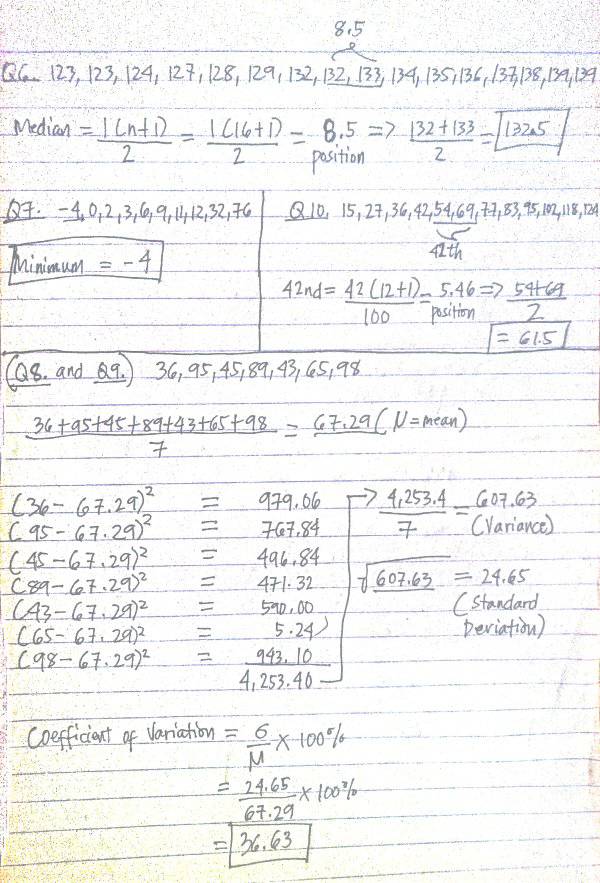 8.5
Q6. 123, 123, 124, 127, 128, 129, 132, 132, 133, 134, 135, 136, 137, 138, 139, 139
Median = 1(n+1)/2 = 1(16+1)/2 = 8.5 position => 132+133/2 = 132.5
Q7. -4, 0, 2, 3, 6, 9, 11, 12, 32, 76
Minimum = -4
Q10. 15, 27, 36, 42, 54, 69, 77, 83, 95, 102, 118, 124
42th
42nd = 42(12+1)/100 = 5.46 position => 54+69/2
= 61.5
(Q8. and Q9.) 36, 95, 45, 89, 43, 65, 98
36+95+45+89+43+65+98/7 = 67.29 (μ = mean)
(36 - 67.29)² = 979.06
(95 - 67.29)² = 767.84
(45 - 67.29)² = 496.84
(89 - 67.29)² = 471.32
(43 - 67.29)² = 590.00
(65 - 67.29)² = 5.24
(98 - 67.29)² = 943.10
4,253.40
4,253.4/7 = 607.63
(Variance)
√607.63 = 24.65
(Standard
Deviation)
Coefficient of Variation = σ/μ × 100%
= 24.65/67.29 × 100%
= 36.63